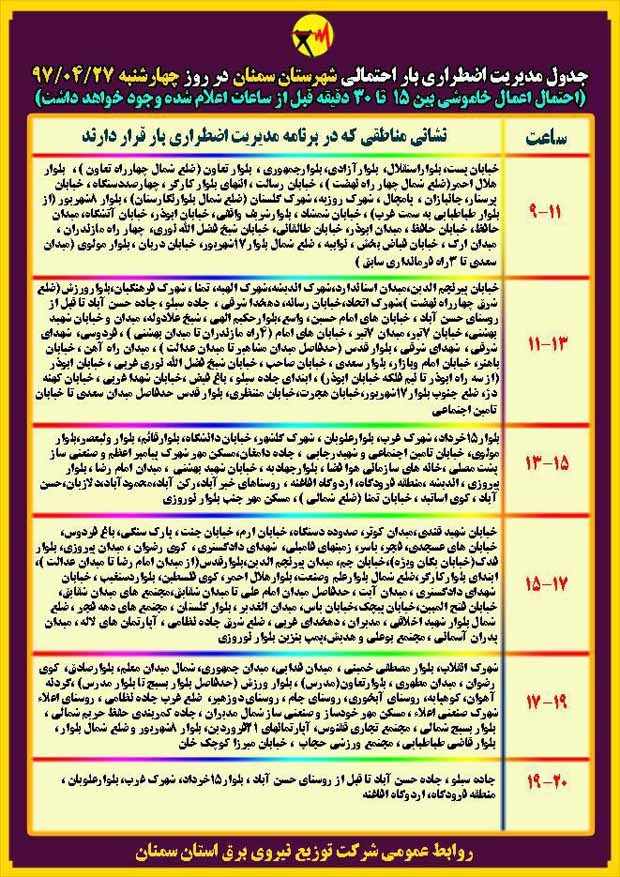 جدول مدیریت اضطراری بار احتمالی شهرستان سمنان در روز چهارشنبه ۹۷/۰۴/۲۷
(احتمال اعمال خاموشی بین ۱۵ تا ۳۰ دقیقه قبل از ساعات اعلام شده وجود خواهد داشت)
ساعت
نشانی مناطقی که در برنامه مدیریت اضطراری بار قرار دارند
۹-۱۱
خیابان پست، بلوار استقلال، بلوار آزادی، بلوار جمهوری ، بلوار تعاون (ضلع شمال چهارراه تعاون ) ، بلوار
هلال احمر(ضلع شمال چهار راه نهضت ) ، خیابان رسالت ، انتهای بلوار کارگر ، چهارصددستگاه ، خیابان
پرستار، جانبازان ، یامچال ، شهرک روزیه، شهرک گلستان (ضلع شمال بلوارنگارستان) ، بلوار ۸شهریور (از
بلوار طباطبایی به سمت غرب) ، خیابان شمشاد ، بلوارشریف واقفی، خیابان ابوذر، خیابان آتشگاه، میدان
حافظ، خیابان حافظ ، میدان ابوذر، خیابان طالقانی، خیابان شیخ فضل الله نوری، چهار راه مازندران ،
میدان ارک ، خیابان فیاض بخش ، نوابیه ، ضلع شمال بلوار ۱۷شهریور، خیابان دربان ، بلوار مولوی (میدان
سعدی تا ۳راه فرمانداری سابق )
۱۱-۱۳
خیابان پیرنجم الدین،میدان استاندارد،شهرک اندیشه،شهرک الهیه، تمنا ، شهرک فرهنگیان،بلوارورزش(ضلع
شرق چهارراه نهضت )،شهرک اتحاد،خیابان رسانه، دهخدا شرقی ، جاده سیلو ، جاده حسن آباد تا قبل از
روستای حسن آباد ، خیابان های امام حسین، واسع،بلوارحکیم الهی ، شیخ علادوله، میدان و خیابان شهید
بهشتی، خیابان ۷تیر، میدان ۷تیر ، خیابان های امام (۴راه مازندران تا میدان بهشتی ) ، فردوسی، شهدای
شرقی ، شهدای شرقی ، بلوار قدس (حدفاصل میدان مشاهیر تا میدان عدالت ) ، میدان راه آهن ، خیابان
باهنر، خیابان امام وبازار، بلوار سعدی ، خیابان صاحب ، خیابان شیخ فضل الله نوری غربی ، خیابان ابوذر
(از سه راه ابوذر تا نیم فلکه خیابان ابوذر) ، ابتدای جاده سیلو ، باغ فیض، خیابان شهدا غربی ، خیابان کهنه
دژ، ضلع جنوب بلوار ۱۷شهریور،خیابان هجرت،خیابان منتظری، بلوار قدس حدفاصل میدان سعدی تا خیابان
تامین اجتماعی
۱۳-۱۵
بلوار ۱۵خرداد، شهرک غرب، بلوارعلویان ، شهرک گلشهر، خیابان دانشگاه، بلوارقائم، بلوار ولیعصر،بلوار
مولوی، خیابان تامین اجتماعی و شهیدرجایی ، جاده دامغان،مسکن مهر شهرک پیامبر اعظم و صنعتی ساز
پشت مصلی ، خانه های سازمانی هوا فضا ، بلوارجهادیه ، خیابان شهید بهشتی ، میدان امام رضا ، بلوار
پیروزی ، اندیشه ،منطقه فرودگاه، اردوگاه افاغنه ، روستاهای خیرآباد، رکن آباد،محمودآباد،دلازیان،حسن
آباد ، کوی اساتید ، خیابان تمنا (ضلع شمالی ) ، مسکن مهر جنب بلوار نوروزی
۱۵-۱۷
خیابان شهید قندی،میدان کوثر، صدوده دستگاه، خیابان ارم، خیابان جنت ، پارک سنگی، باغ فردوس،
خیابان های عسجدی، فجر، یاسر، زمینهای فامیلی، شهدای دادگستری ، کوی رضوان ، میدان پیروزی، بلوار
فدک(خیابان یکان ویژه)، خیابان جم، میدان پیرنجم الدین،بلوارقدس(از میدان امام رضا تا میدان عدالت )،
ابتدای بلوار کارگر،ضلع شمال بلوارعلم وصنعت، بلوار هلال احمر، کوی فلسطین، بلواردستغیب ، خیابان
شهدای دادگستری ، میدان آیت ، حدفاصل میدان امام علی تا میدان شقایق،مجتمع های میدان شقایق،
خیابان فتح المبین،خیابان پیچک،خیابان یاس، میدان الغدیر ، بلوار گلستان ، مجتمع های دهه فجر ، ضلع
شمال بلوار شهید اخلاقی ، مدبران ، دهخدای غربی ، ضلع شرق جاده نظامی ، آپارتمان های لاله ، میدان
پدران آسمانی ، مجتمع بوعلی و هدیش،پمپ بنزین بلوار نوروزی
۱۷-۱۹
شهرک انقلاب، بلوار مصطفی خمینی ، میدان فدایی، میدان جمهوری، شمال میدان معلم، بلوارصادق، کوی
رضوان ، میدان مطهری ، بلوارتعاون(مدرس) ، بلوار ورزش (حدفاصل بلوار بسیج تا بلوار مدرس) ،گردنه
آهوان، کوهپایه، روستای آبخوری، روستای جام ، روستای دوزهیر، ضلع غرب جاده نظامی ، روستای اعلاء
شهرک صنعتی اعلاء ، مسکن مهر خودساز و صنعتی ساز شمال مدبران ، جاده کمربندی حلقه حریم شمالی ،
بلوار بسیج شمالی ، مجتمع تجاری ققنوس، آپارتمانهای ۲۱فروردین، بلوار ۸شهریور و ضلع شمال بلوار،
بلوار قاضی طباطبایی ، مجتمع ورزشی حجاب ، خیابان میرزا کوچک خان
۱۹-۲۰
جاده سیلو ، جاده حسن آباد تا قبل از روستای حسن آباد ، بلوار۱۵خرداد، شهرک غرب، بلوارعلویان ،
منطقه فرودگاه، اردوگاه افاغنه
روابط عمومی شرکت توزیع نیروی برق استان سمنان